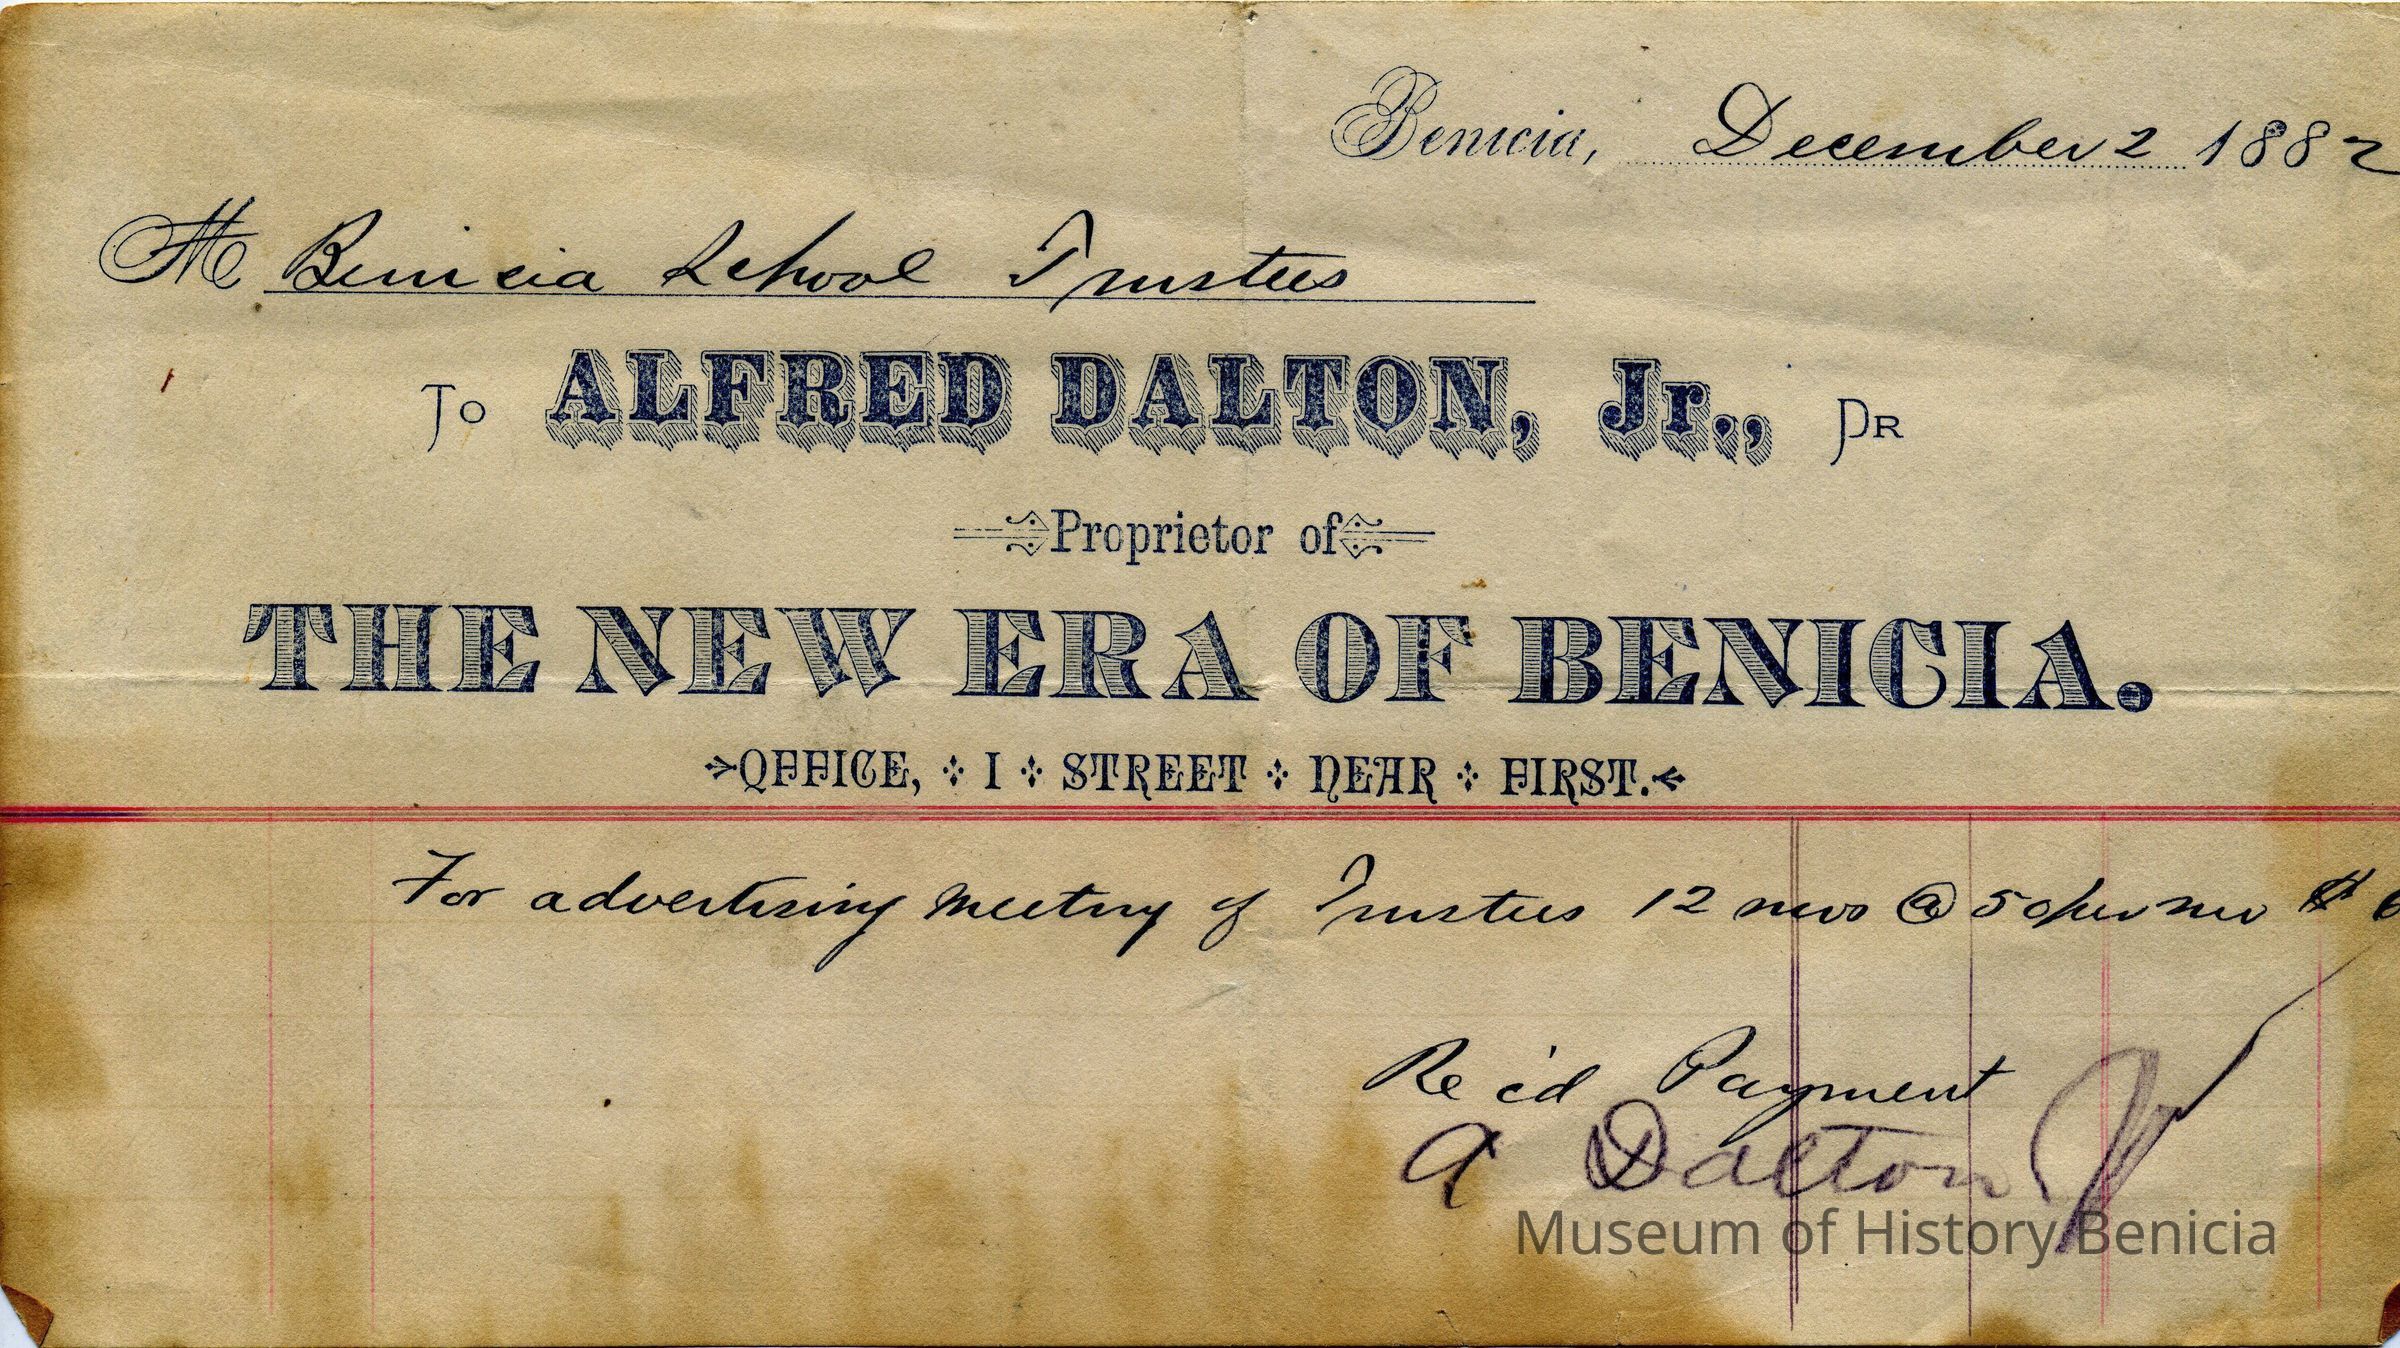 Benicia, December 2 1882
M Benicia School Trustees
To ALFRED DALTON, Jr., DR
Proprietor of
THE NEW ERA OF BENICIA.
OFFICE, I STREET NEAR FIRST.
For advertising meeting of Trustees 12 @ 50 per $ 6
Rec'd Payment
A Dalton Jr
Museum of History Benicia